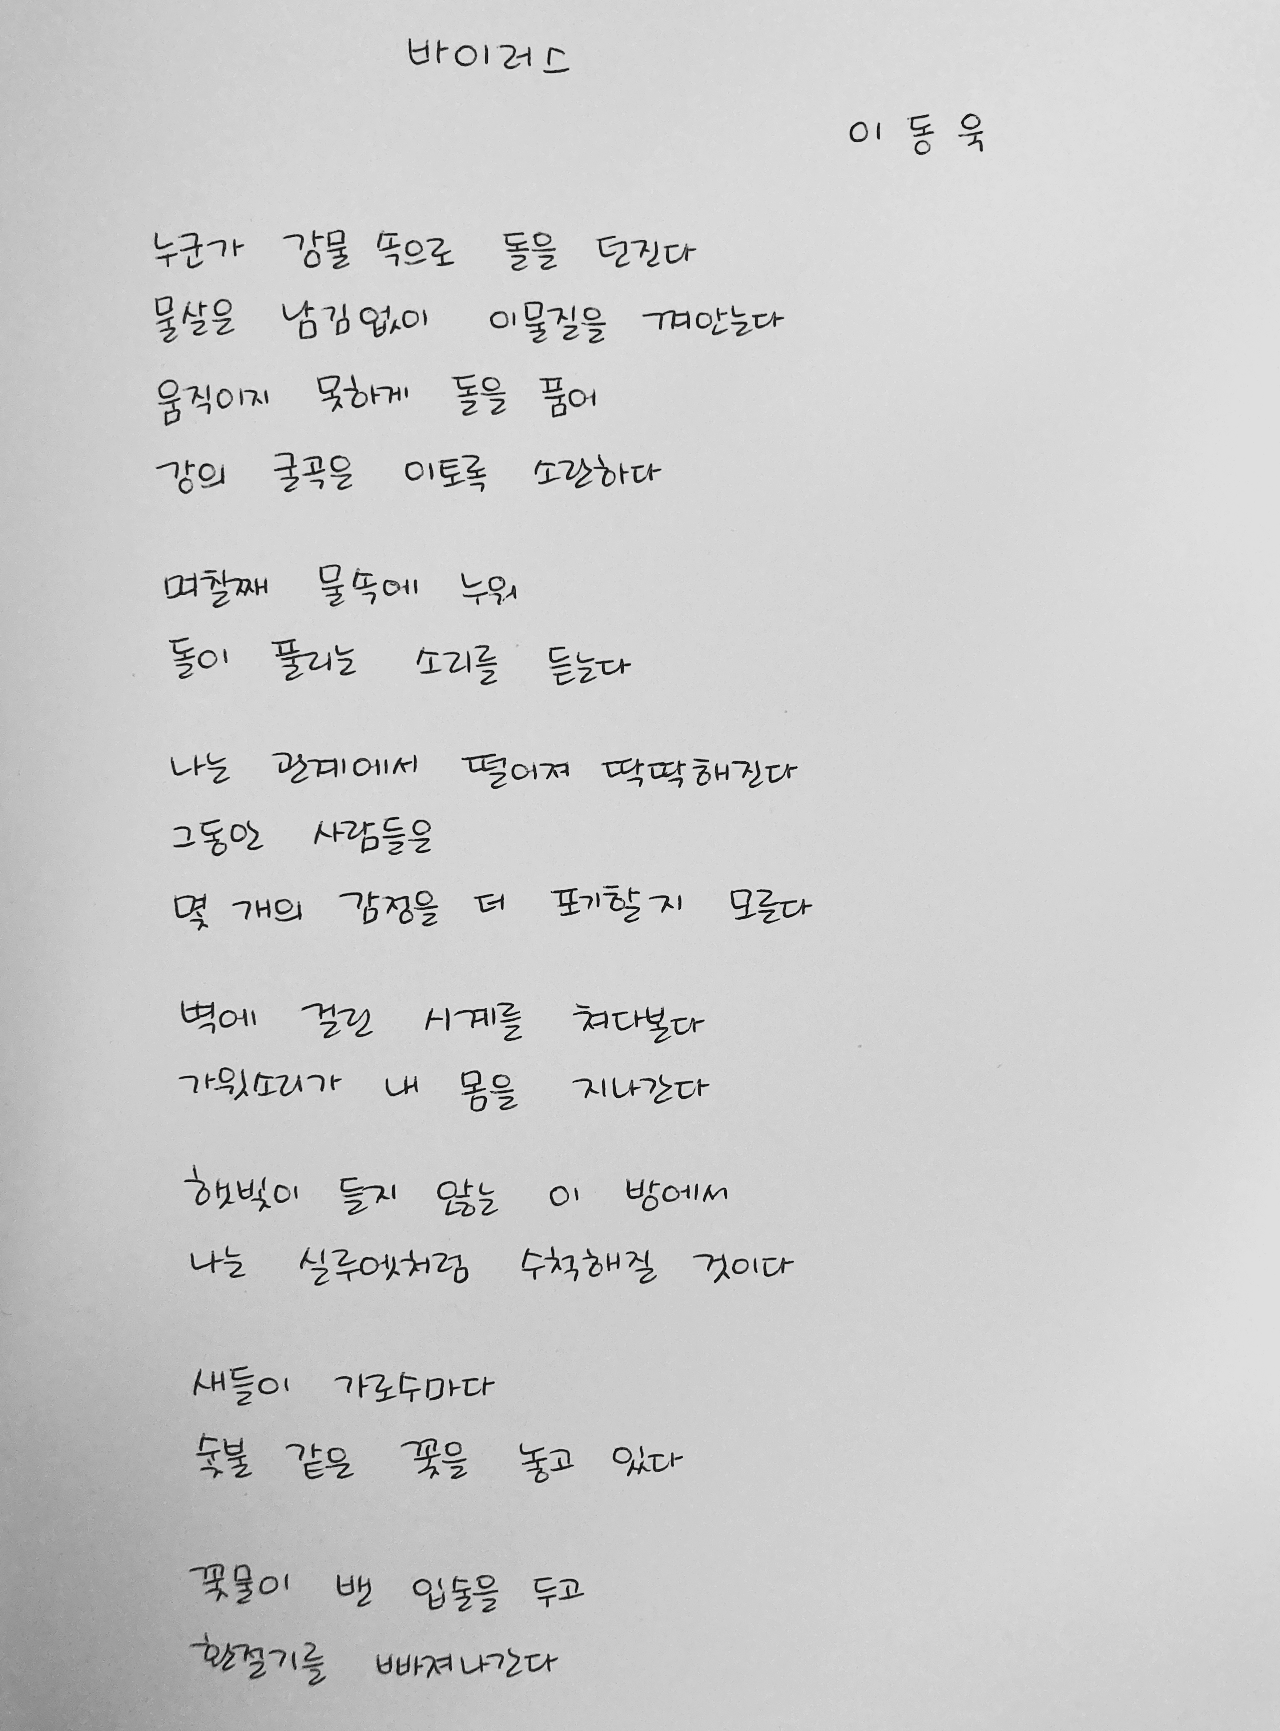 바이러스
이동욱
누군가 강물 속으로 돌을 던진다
물살은 남김없이 이물질을 껴안는다
움직이지 못하게 돌을 품어
강의 굴곡은 이토록 소란하다
며칠째 물속에 누워
돌이 풀리는 소리를 듣는다
나는 관계에서 떨어져 딱딱해진다
그동안 사람들은
몇 개의 감정을 더 포기할지 모른다
벽에 걸린 시계를 쳐다본다
가윗소리가 내 몸을 지나간다
햇빛이 들지 않는 이 방에서
나는 실루엣처럼 수척해질 것이다
새들이 가로수마다
숯불 같은 꽃을 놓고 있다
꽃물이 밴 입술을 두고
환절기를 빠져나간다